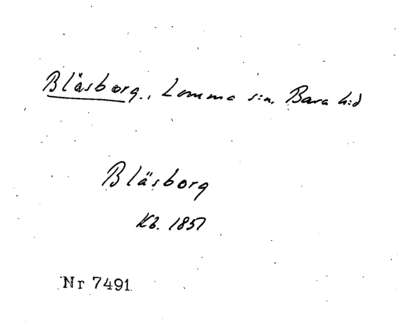 Bläsborg., Lomma s:n, Bara h:d
Bläsborg
Kb. 1851
Nr 7491